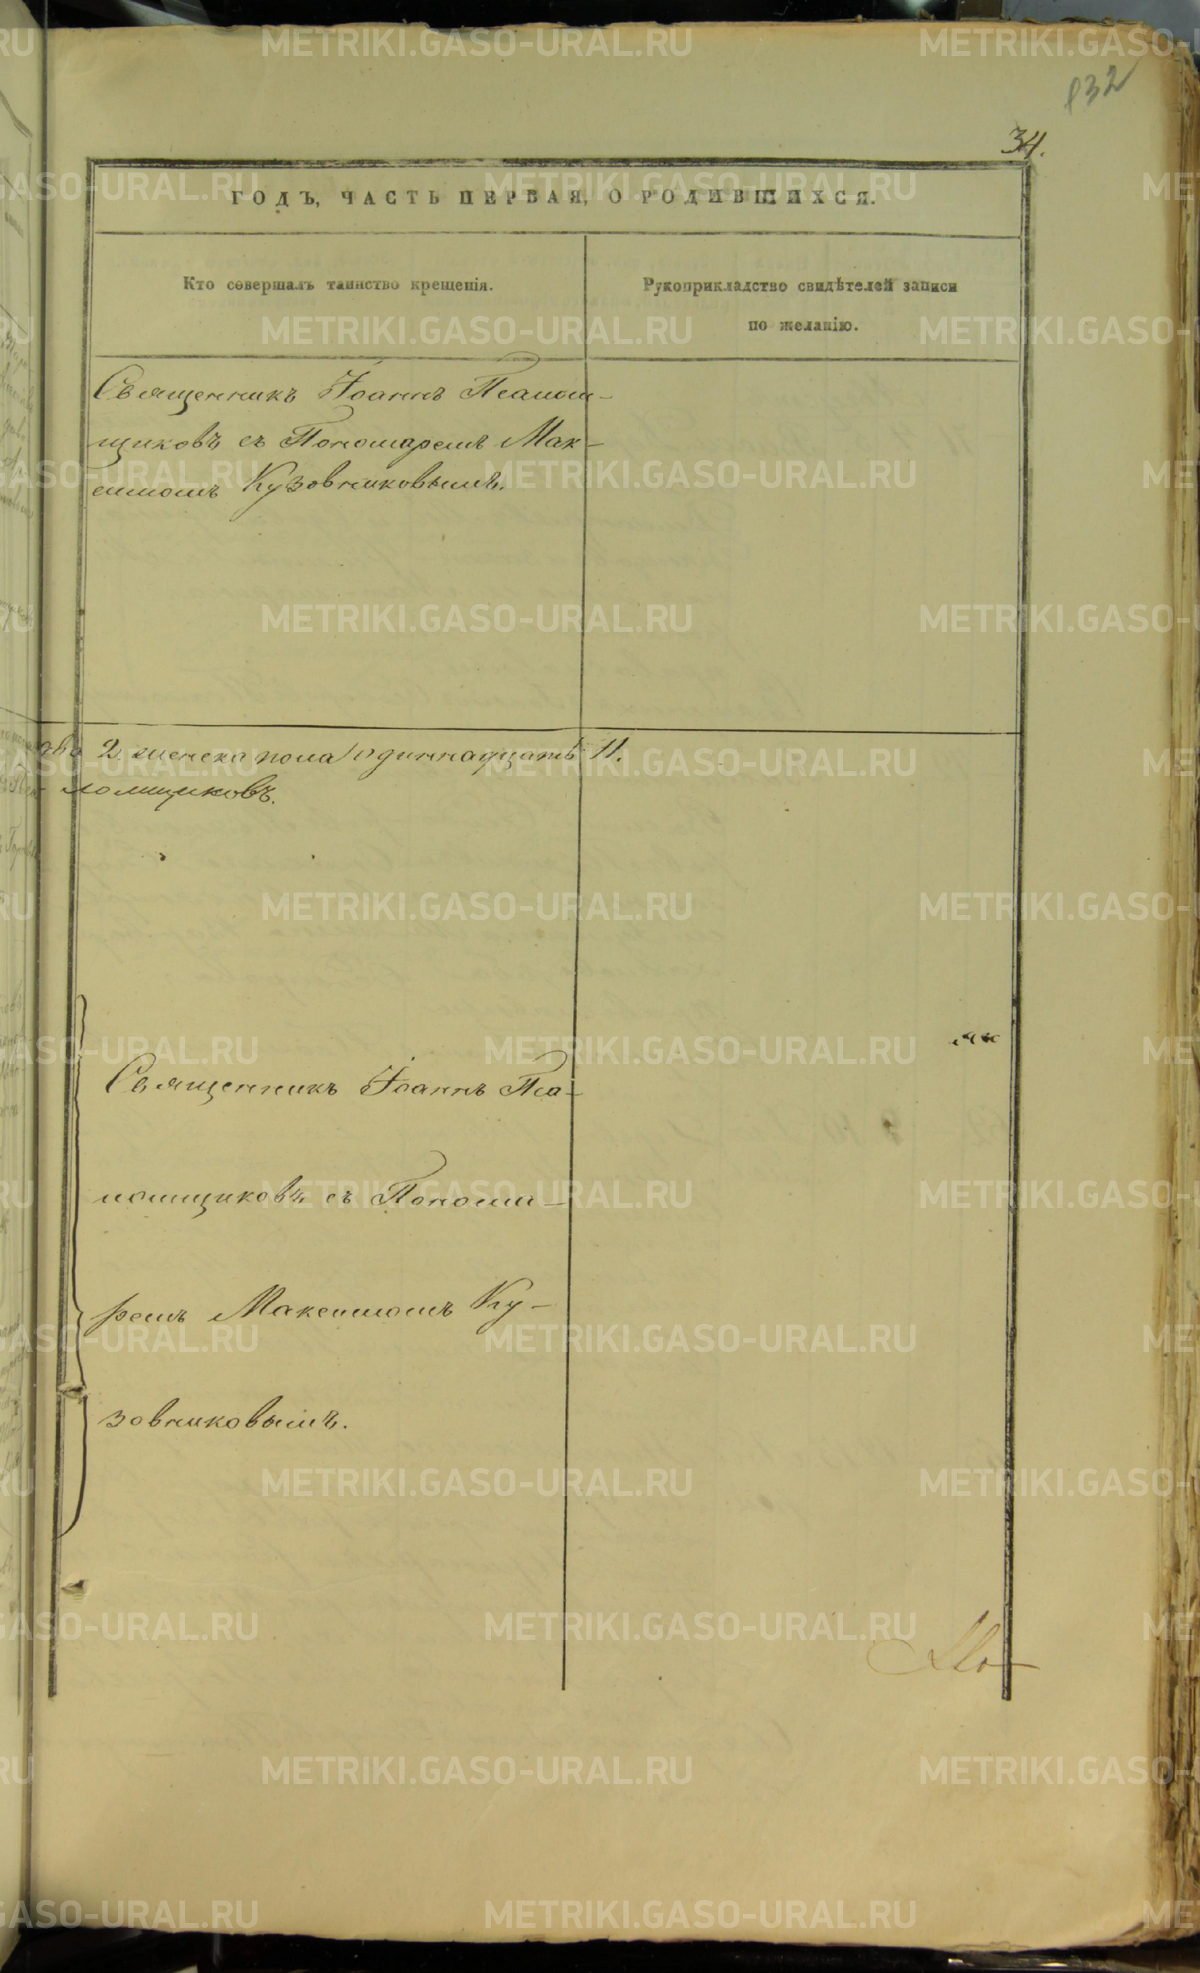 832
34.
ГОДЪ, ЧАСТЬ ПЕРВАЯ, О РОДИВШИХСЯ.
Кто совершалъ таинство крещенія.
Рукоприкладство свидѣтелей записи
по желанію.
Священникъ Іоаннъ Псалом-
щиковъ съ Пономаремъ Мак-
симомъ Кузовниковымъ.
два 2. женска пола одиннадцать 11.
ломщиковъ.
Священникъ Іоаннъ Пса-
ломщиковъ съ Понома-
ремъ Максимомъ Ку-
зовниковымъ.
METRIKI.GASO-URAL.RU